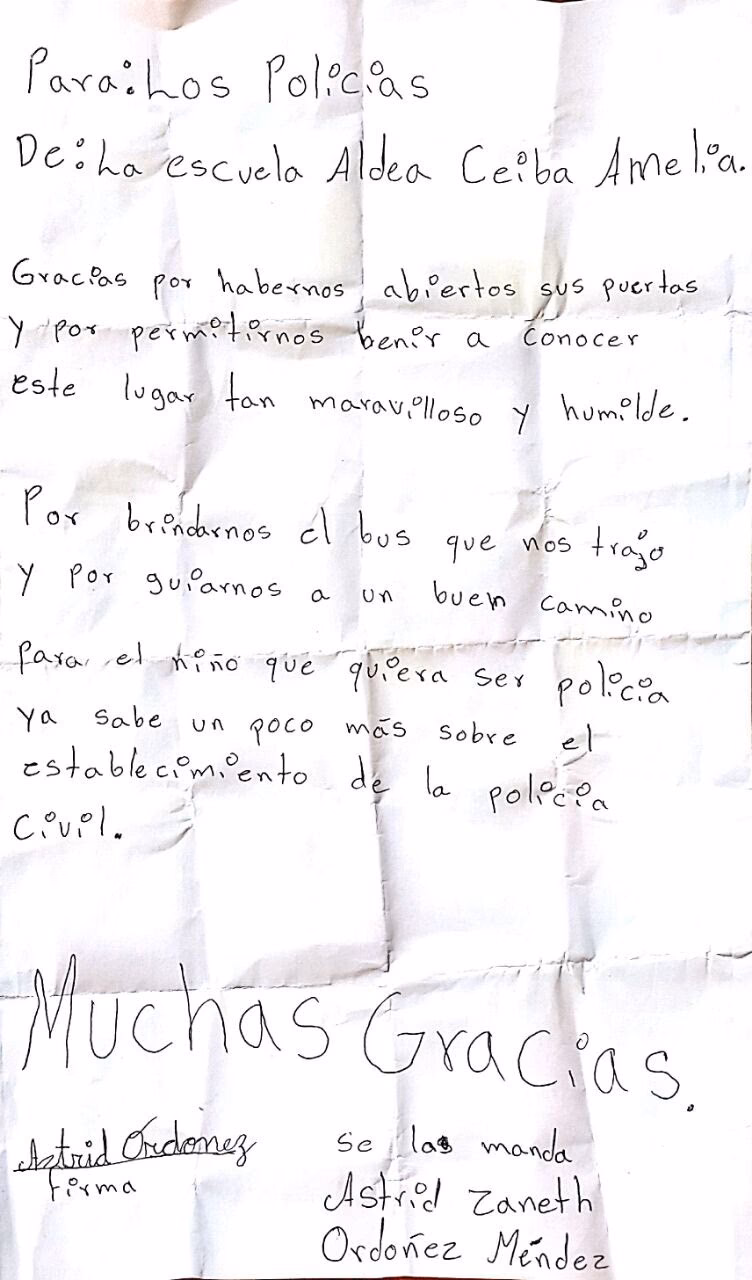 Para: Los Policias
De: La escuela Aldea Ceiba Amelia.
Gracias por habernos abiertos sus puertas
y por permitirnos benir a conocer
este lugar tan maravilloso y humilde.
Por brindarnos el bus que nos trajo
y por guiarnos a un buen camino
para el niño que quiera ser policia
ya sabe un poco más sobre el
establecimiento de la policia
civil.
Muchas Gracias.
Astrid Ordoñez
firma
se las manda
Astrid Zaneth
Ordoñez Méndez